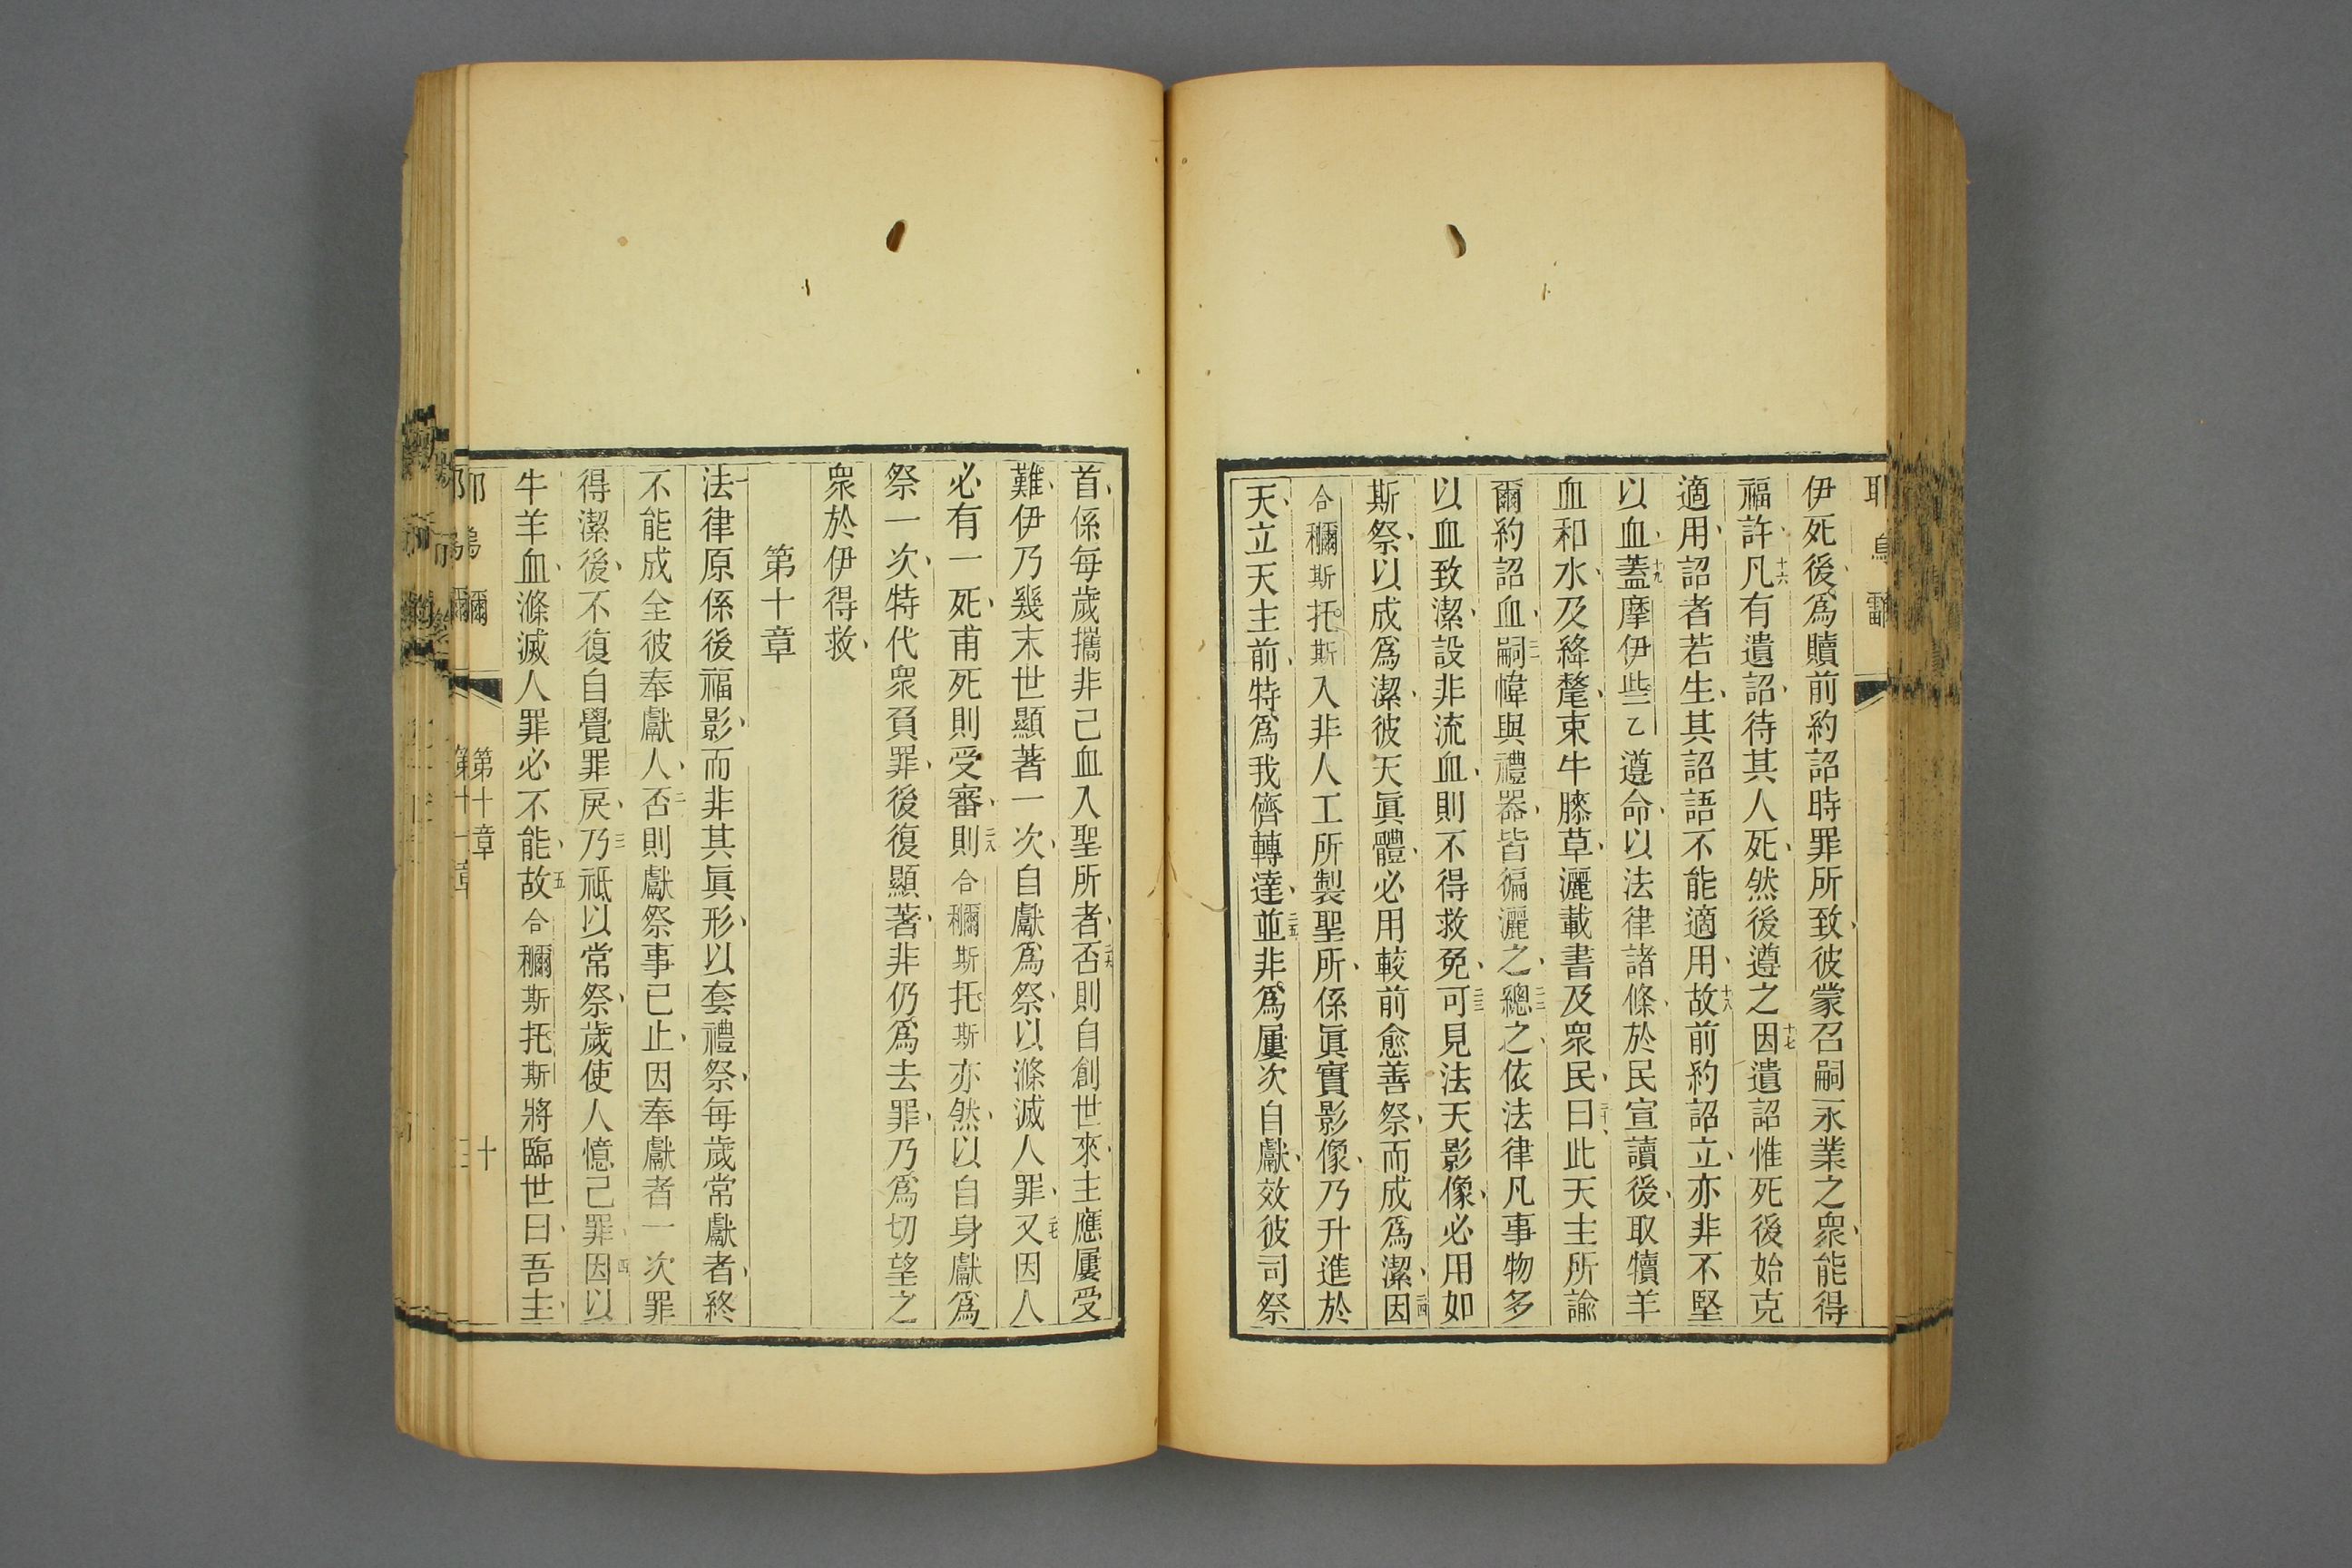 伊死後、爲贖前約詔時罪所致、彼蒙召嗣永業之衆、能得
福許、十六凡有遺詔、待其人死、然後遵之、十七因遺詔惟死後始克
適用、詔者若生、其詔語不能適用、十八故前約詔立、亦非不堅
以血、十九蓋摩伊些乙遵命、以法律諸條、於民宣讀後、取犢羊
血和水、及絳氂、束牛膝草、灑載書及衆民、二十曰、此天主所諭
爾約詔血、二一嗣幃與禮器、皆徧灑之、二二總之、依法律凡事物多
以血致潔、設非流血、則不得救免、二三可見法天影像、必用如
斯祭、以成爲潔、彼天眞體、必用較前愈善祭、而成爲潔、二四因
合穪斯托斯入非人工所製聖所、係眞實影像、乃升進於
天、立天主前、特爲我儕轉達、二五並非爲屢次自獻、效彼司祭
首、係每歲攜非己血入聖所者、二六否則自創世來、主應屢受
難、伊乃幾末世顯著一次、自獻爲祭、以滌滅人罪、二七又因人
必有一死、甫死則受審、二八則合穪斯托斯亦然、以自身獻爲
祭一次、特代衆負罪、後復顯著、非仍爲去罪、乃爲切望之
衆於伊得救、
第十章
一法律原係後福影、而非其眞形、以套禮祭、每歲常獻者、終
不能成全彼奉獻人、二否則獻祭事已止、因奉獻者一次罪
得潔後、不復自覺罪戾、三乃祗以常祭、歲使人憶己罪、四因以
牛羊血、滌滅人罪必不能、五故合穪斯托斯將臨世曰、吾主、
耶烏爾
第十章
十
第十一章